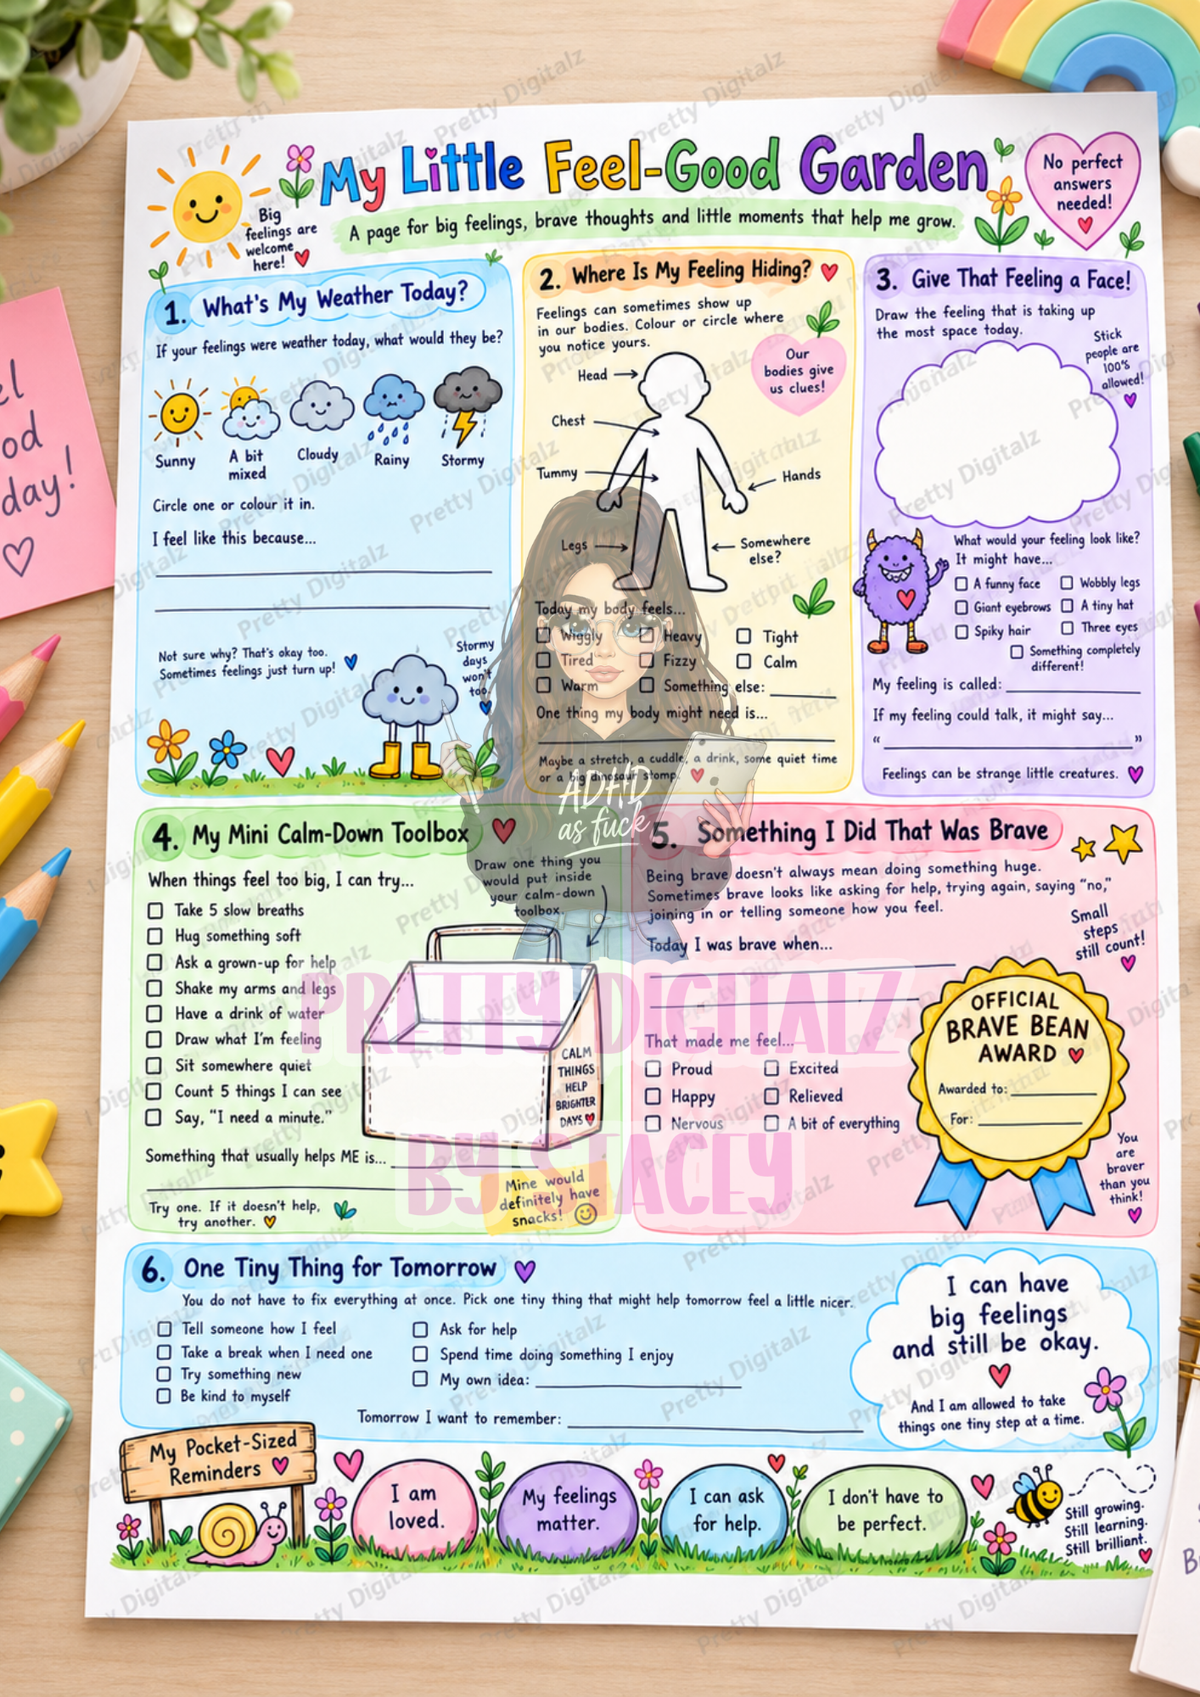 My Little Feel-Good Garden
A page for big feelings, brave thoughts and little moments that help me grow.
Big
feelings are
welcome
here!
No perfect
answers
needed!
1. What's My Weather Today?
If your feelings were weather today, what would they be?
Sunny
A bit
mixed
Cloudy
Rainy
Stormy
Circle one or colour it in.
I feel like this because...
Not sure why? That's okay too.
Sometimes feelings just turn up!
Stormy
days
won't
too.
2. Where Is My Feeling Hiding?
Feelings can sometimes show up
in our bodies. Colour or circle where
you notice yours.
Our
bodies give
us clues!
Head
Chest
Tummy
Hands
Legs
Somewhere
else?
Today my body feels...
Wiggly
Heavy
Tight
Tired
Fizzy
Calm
Warm
Something else:
One thing my body might need is...
Maybe a stretch, a cuddle, a drink, some quiet time
or a big dinosaur stomp.
3. Give That Feeling a Face!
Draw the feeling that is taking up
the most space today.
Stick
people are
100%
allowed!
What would your feeling look like?
It might have...
A funny face
Wobbly legs
Giant eyebrows
A tiny hat
Spiky hair
Three eyes
Something completely
different!
My feeling is called:
If my feeling could talk, it might say...
“ ”
Feelings can be strange little creatures.
ADHD
as fuck
4. My Mini Calm-Down Toolbox
When things feel too big, I can try...
Take 5 slow breaths
Hug something soft
Ask a grown-up for help
Shake my arms and legs
Have a drink of water
Draw what I'm feeling
Sit somewhere quiet
Count 5 things I can see
Say, “I need a minute.”
Draw one thing you
would put inside
your calm-down
toolbox.
CALM
THINGS
HELP
BRIGHTER
DAYS
Something that usually helps ME is...
Try one. If it doesn't help,
try another.
Mine would
definitely have
snacks!
5. Something I Did That Was Brave
Being brave doesn't always mean doing something huge.
Sometimes brave looks like asking for help, trying again, saying “no,”
joining in or telling someone how you feel.
Small
steps
still count!
Today I was brave when...
That made me feel...
Proud
Excited
Happy
Relieved
Nervous
A bit of everything
OFFICIAL
BRAVE BEAN
AWARD
Awarded to:
For:
You
are
braver
than you
think!
PRETTY DIGITALZ
BY STACEY
6. One Tiny Thing for Tomorrow
You do not have to fix everything at once. Pick one tiny thing that might help tomorrow feel a little nicer.
Tell someone how I feel
Take a break when I need one
Try something new
Be kind to myself
Ask for help
Spend time doing something I enjoy
My own idea:
Tomorrow I want to remember:
I can have
big feelings
and still be okay.
And I am allowed to take
things one tiny step at a time.
My Pocket-Sized
Reminders
I am
loved.
My feelings
matter.
I can ask
for help.
I don't have to
be perfect.
Still growing.
Still learning.
Still brilliant.
day!
Pretty Digitalz